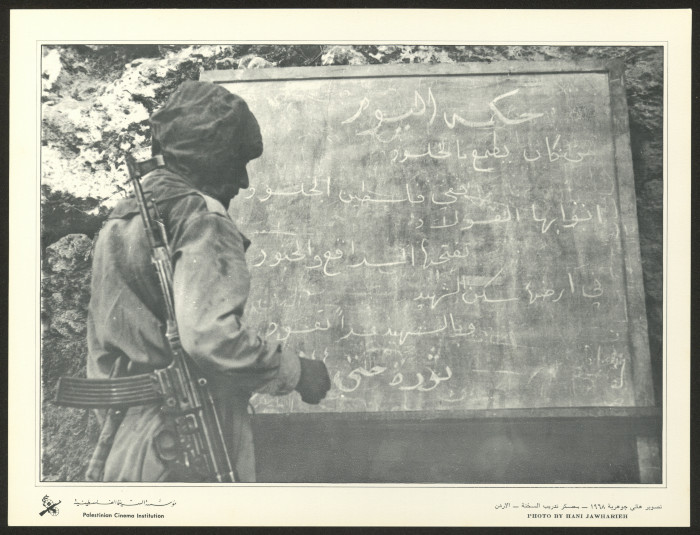 حكمة اليوم
من كان يطمع بالخلود
ففي فلسطين الخلود
ابوابها الفولاذ
تفتحها المدافع والجنود
في ارضها سكن الشهيد
وبالشهيد غداً تعود
ثورة حتى
مؤسسة السينما الفلسطينية
Palestinian Cinema Institution
تصوير هاني جوهرية ١٩٦٨ — معسكر تدريب السخنة — الاردن
PHOTO BY HANI JAWHARIEH